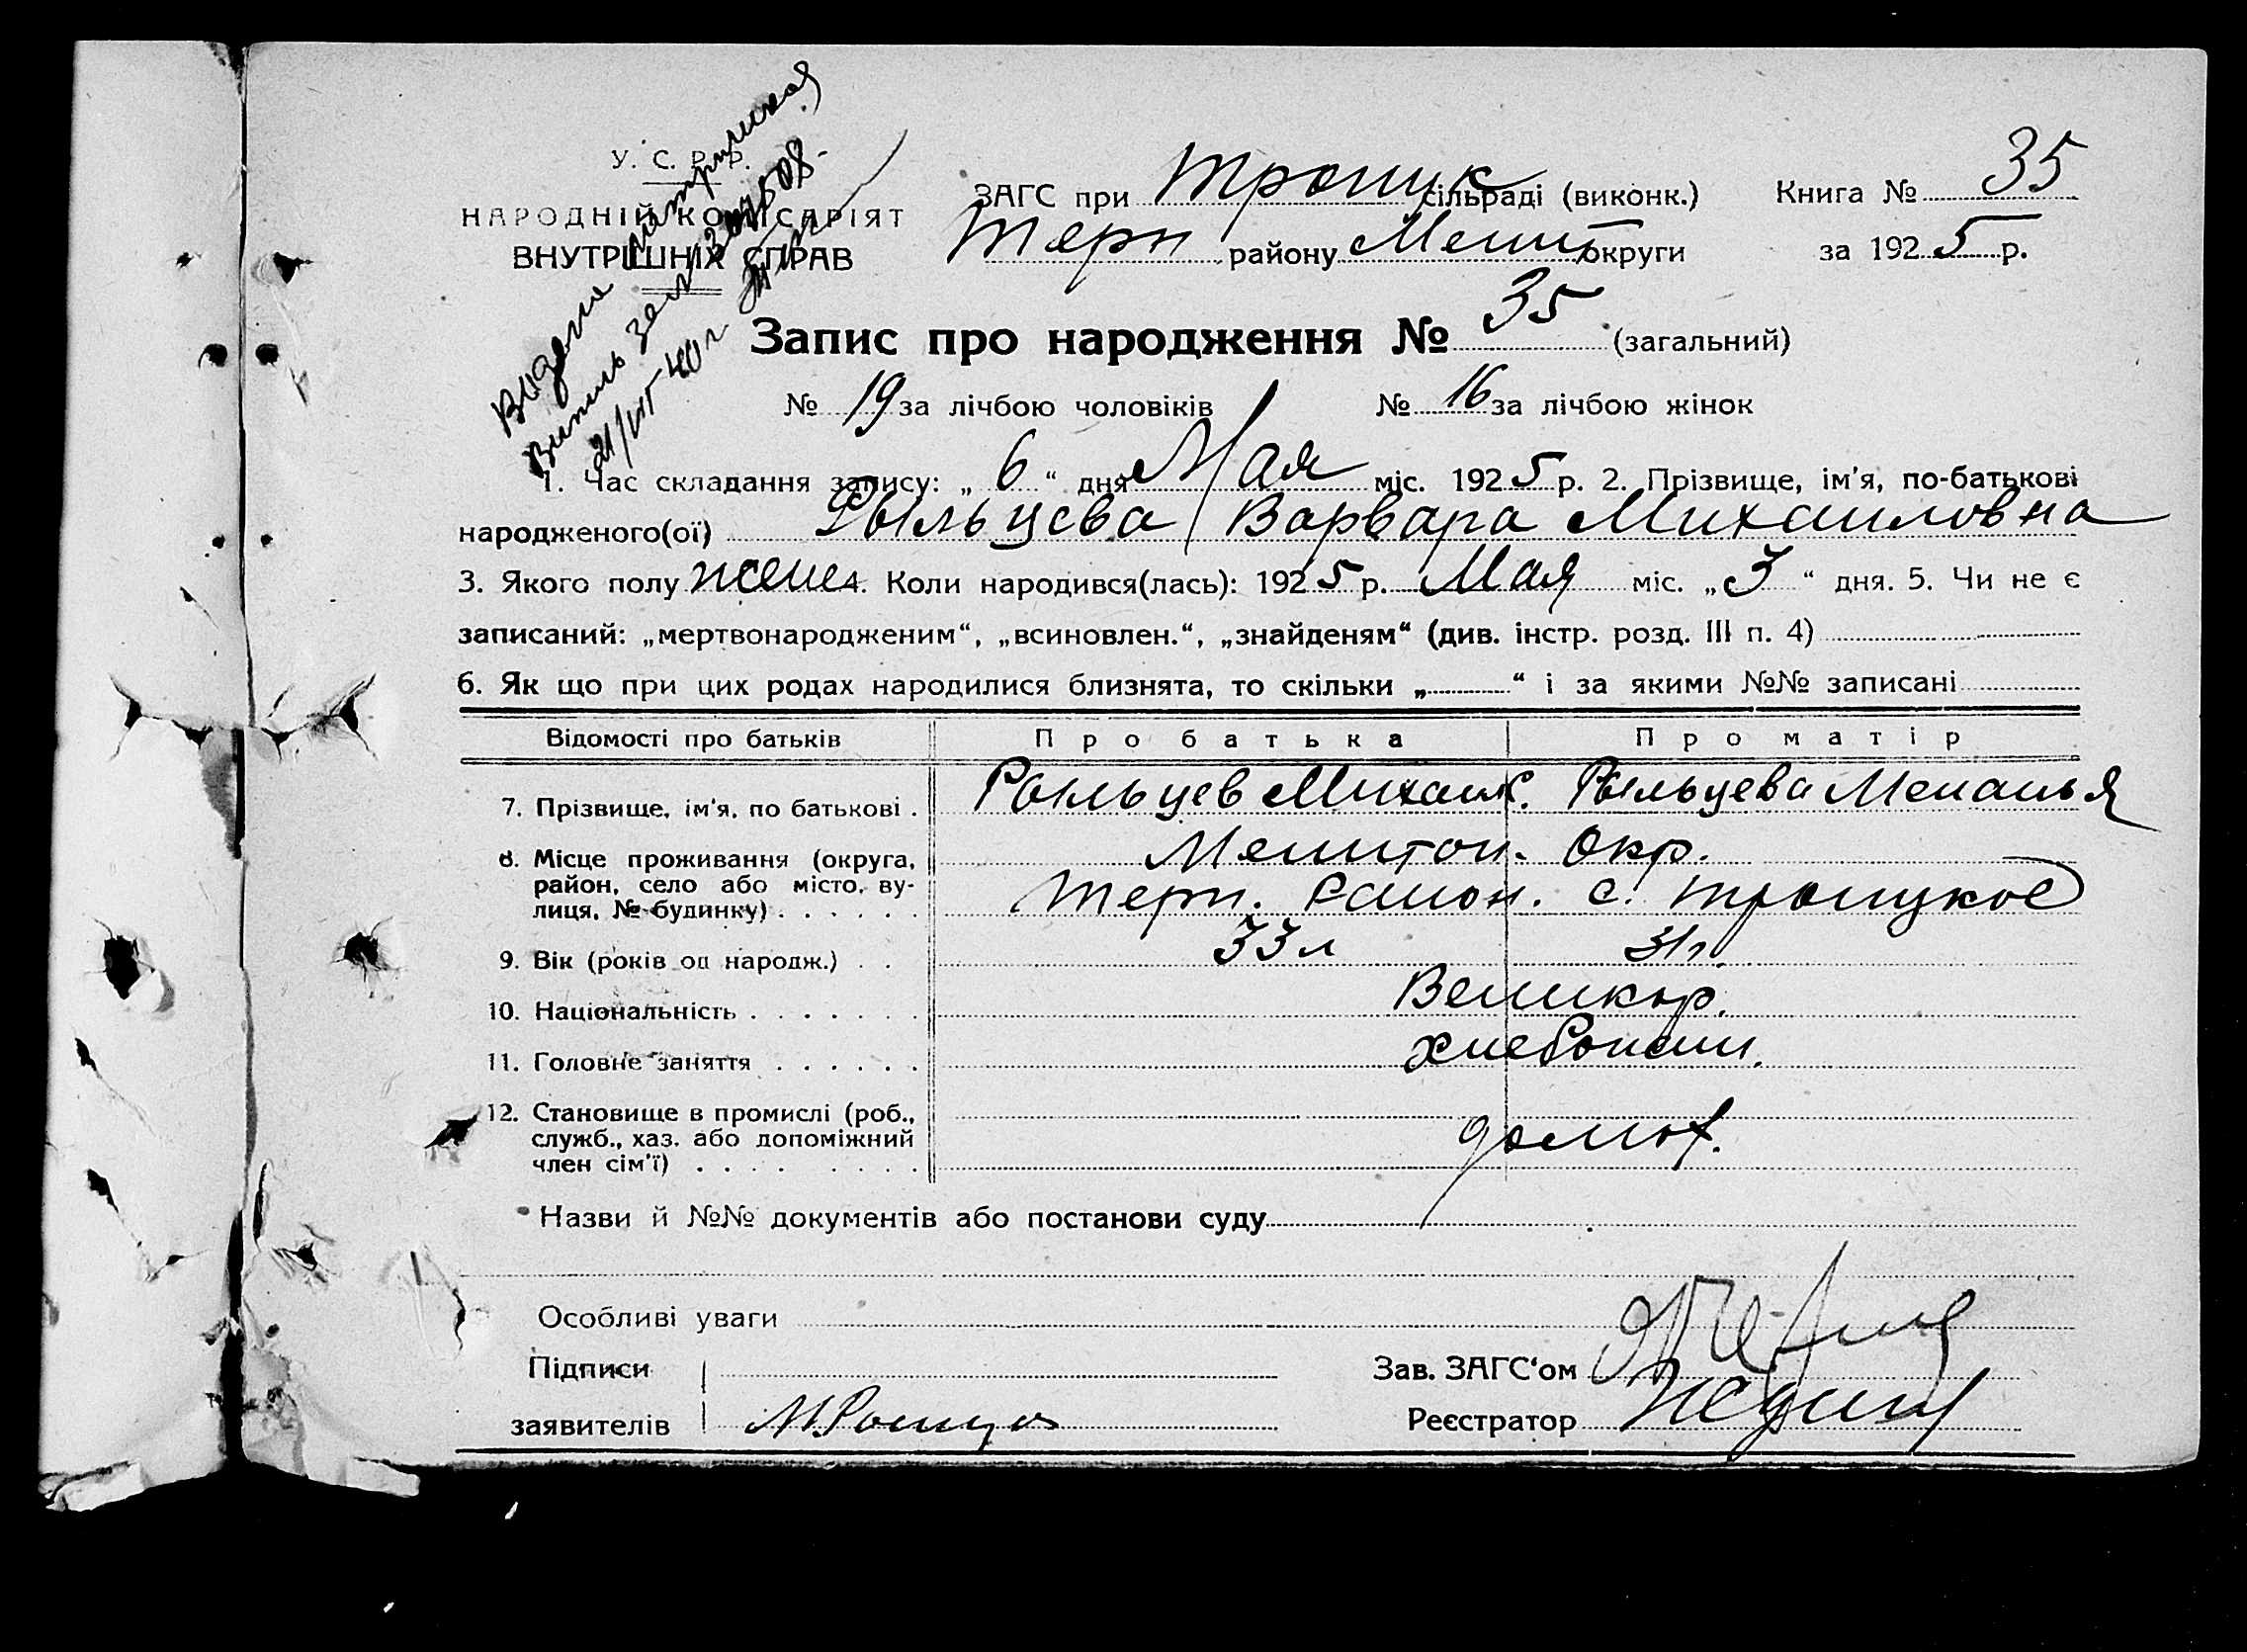 Видана
У. С. Р. Р.
НАРОДНІЙ КОМІСАРІЯТ
ВНУТРІШНІХ СПРАВ
ЗАГС при Троицк сільраді (виконк.) Книга № 35
Терп району Мелит округи за 1925 р.
Запис про народження № 35 (загальний)
№ 19 за лічбою чоловіків № 16 за лічбою жінок
1. Час складання запису: „ 6 “ дня Мая міс. 1925 р. 2. Прізвище, ім'я, по-батькові
народженого(ої) Рыльцева Варвара Михаиловна
3. Якого полу жен 4. Коли народився(лась): 1925 р. Мая міс. „ 3 “ дня. 5. Чи не є
записаний: „мертвонародженим“, „всиновлен.“, „знайденям“ (див. інстр. розд. III п. 4)
6. Як що при цих родах народилися близнята, то скільки „ “ і за якими №№ записані
Відомості про батьків Про батька Про матір
7. Прізвище, ім'я, по батькові . Рыльцев Михаил. Рыльцева Меланья
8. Місце проживання (округа, Мелитоп. Окр.
район, село або місто, ву-
лиця, № будинку) . . . . . . Терп. Район. с. Троицкое
9. Вік (років од народж.) . . 33 л 31 г.
10. Національність . . . . . . . Великор.
11. Головне заняття . . . . . . хлебопаш.
12. Становище в промислі (роб.,
служб., хаз. або допоміжний домох.
член сім'ї) . . . . . . . . .
Назви й №№ документів або постанови суду
Особливі уваги
Підписи Зав. ЗАГС'ом
заявителів Реєстратор